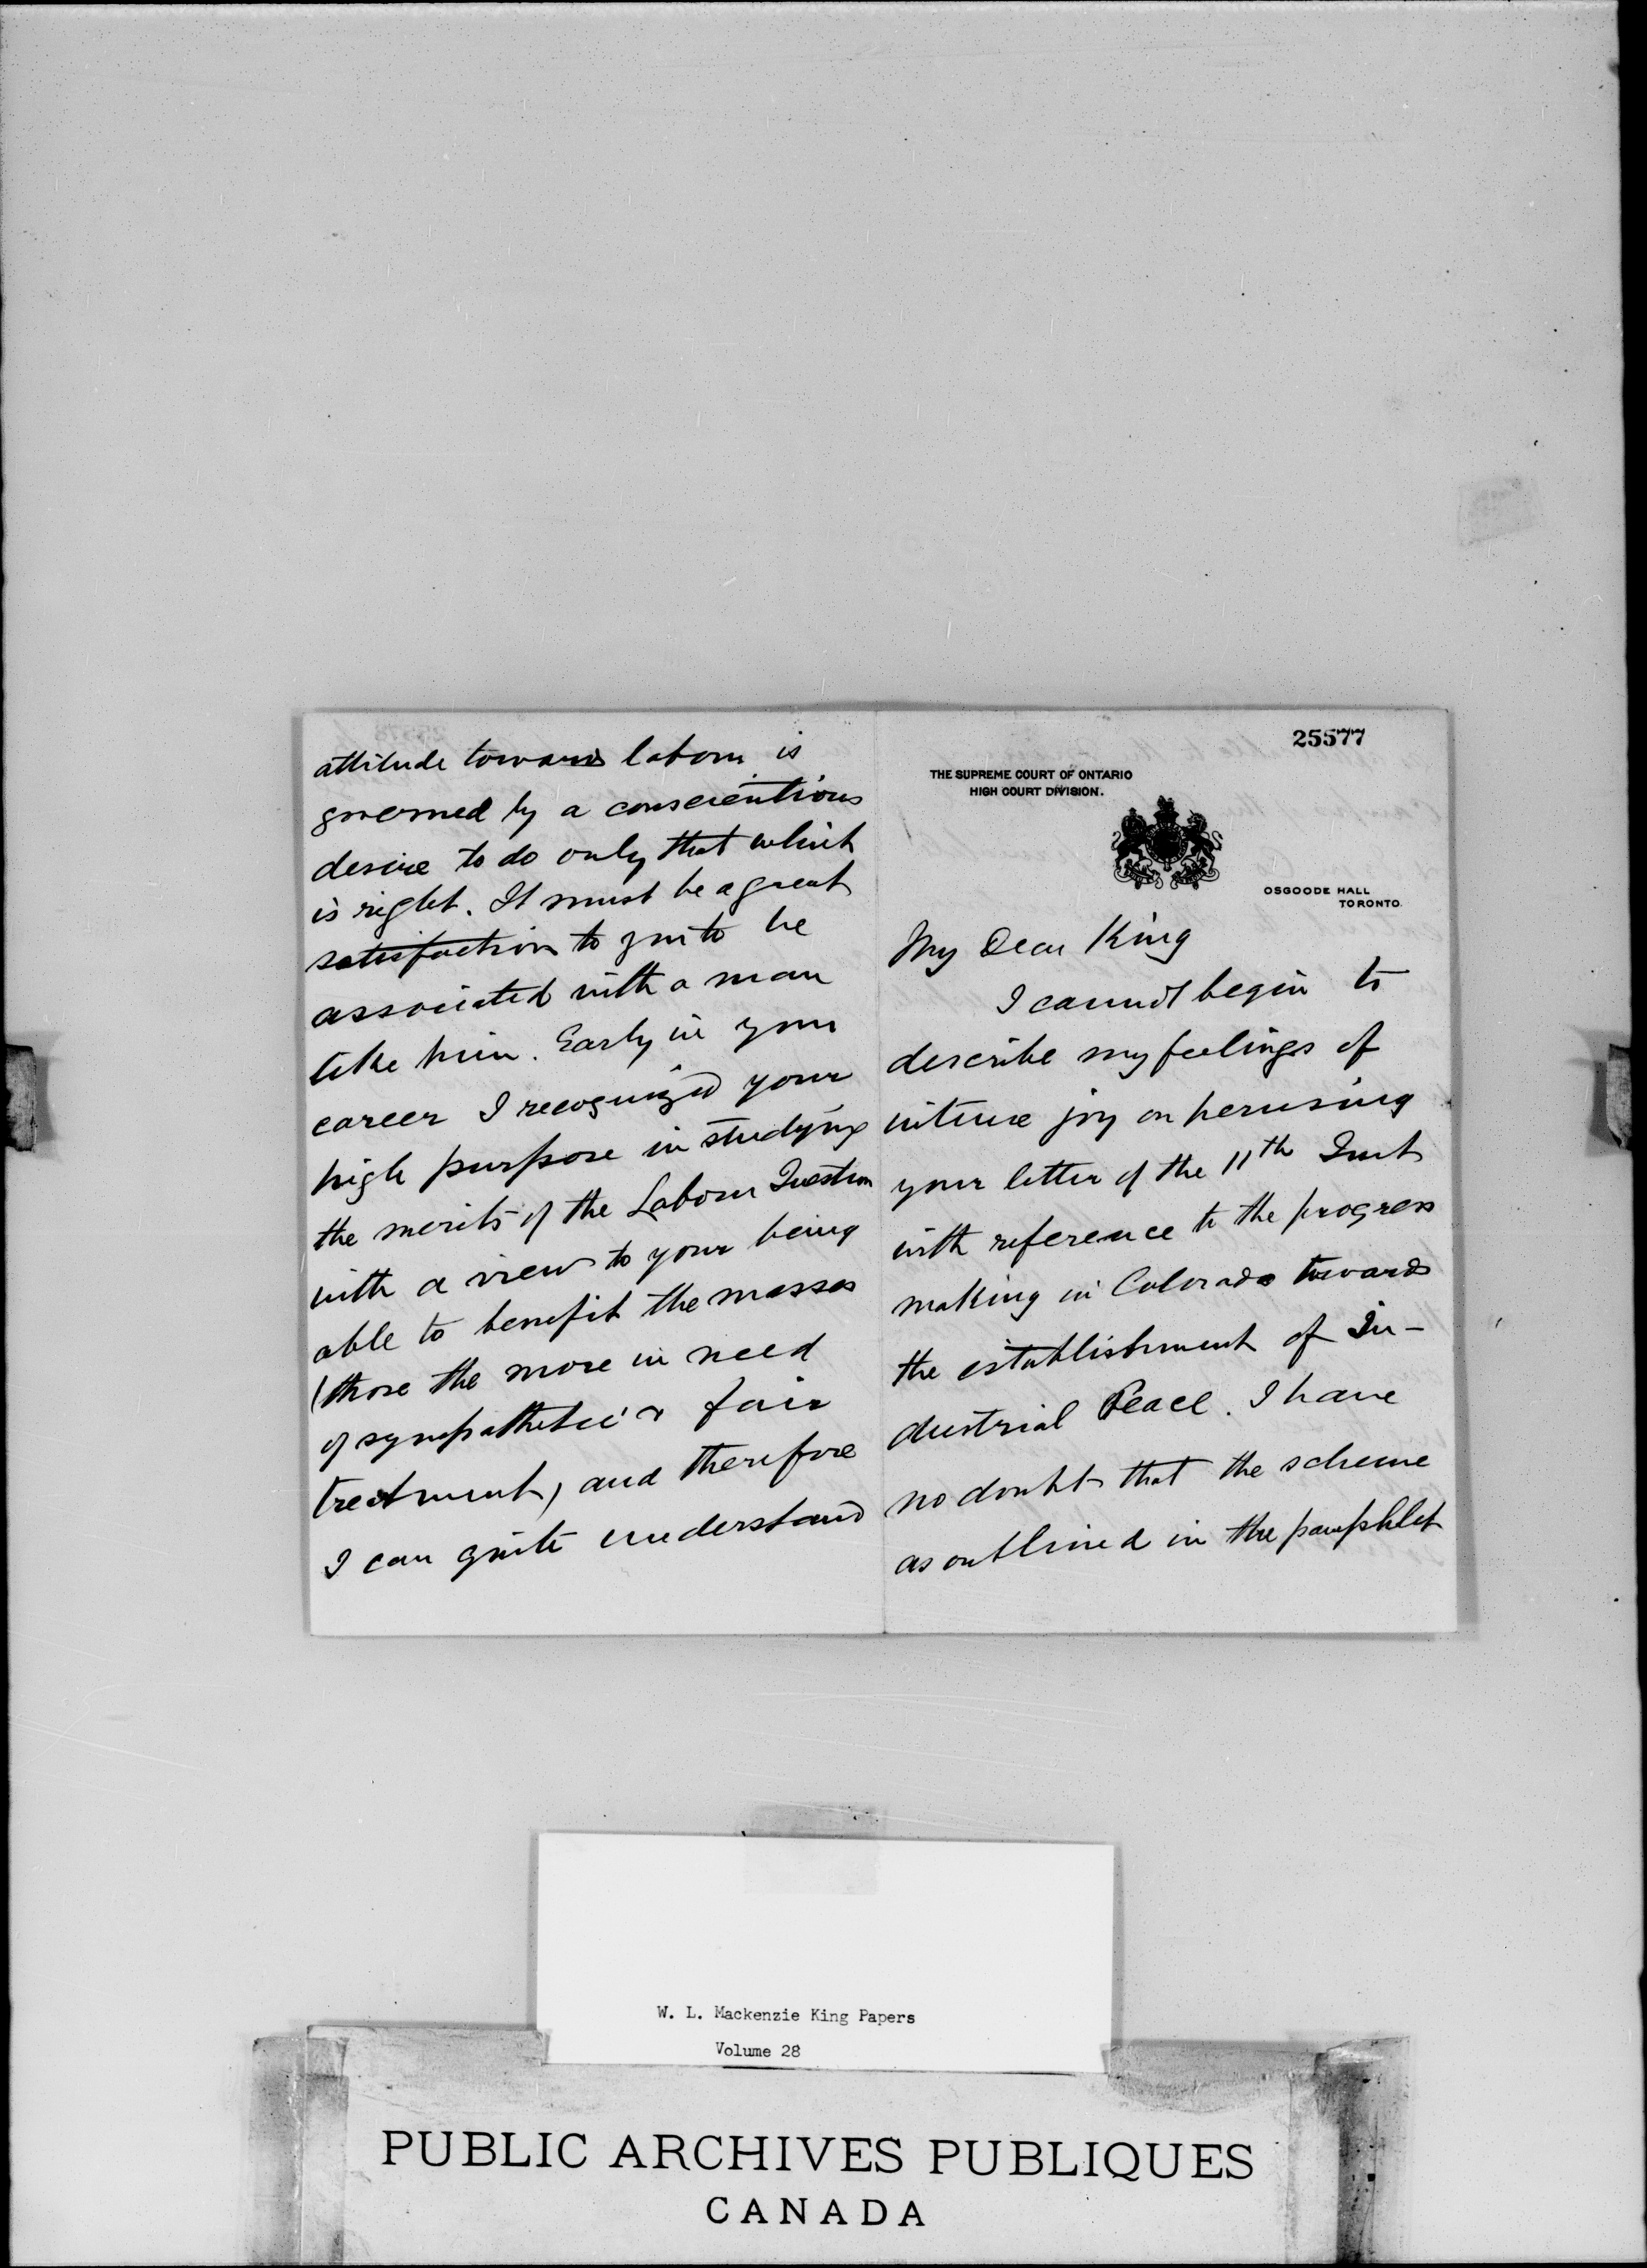 attitude towards labour is
governed by a conscientious
desire to do only that which
is right. It must be a great
satisfaction to you to be
associated with a man
like him. Early in your
career I recognized your
high purpose in studying
the merits of the Labour Question
with a view to your being
able to benefit the masses
(those the more in need
of sympathetic & fair
treatment) and therefore
I can quite understand
25577
THE SUPREME COURT OF ONTARIO
HIGH COURT DIVISION.
OSGOODE HALL
TORONTO.
My Dear King
I cannot begin to
describe my feelings of
intense joy on perusing
your letter of the 11th Inst
with reference to the progress
making in Colorado towards
the establishment of In-
dustrial Peace. I have
no doubt that the scheme
as outlined in the pamphlet
W. L. Mackenzie King Papers
Volume 28
PUBLIC ARCHIVES PUBLIQUES
CANADA